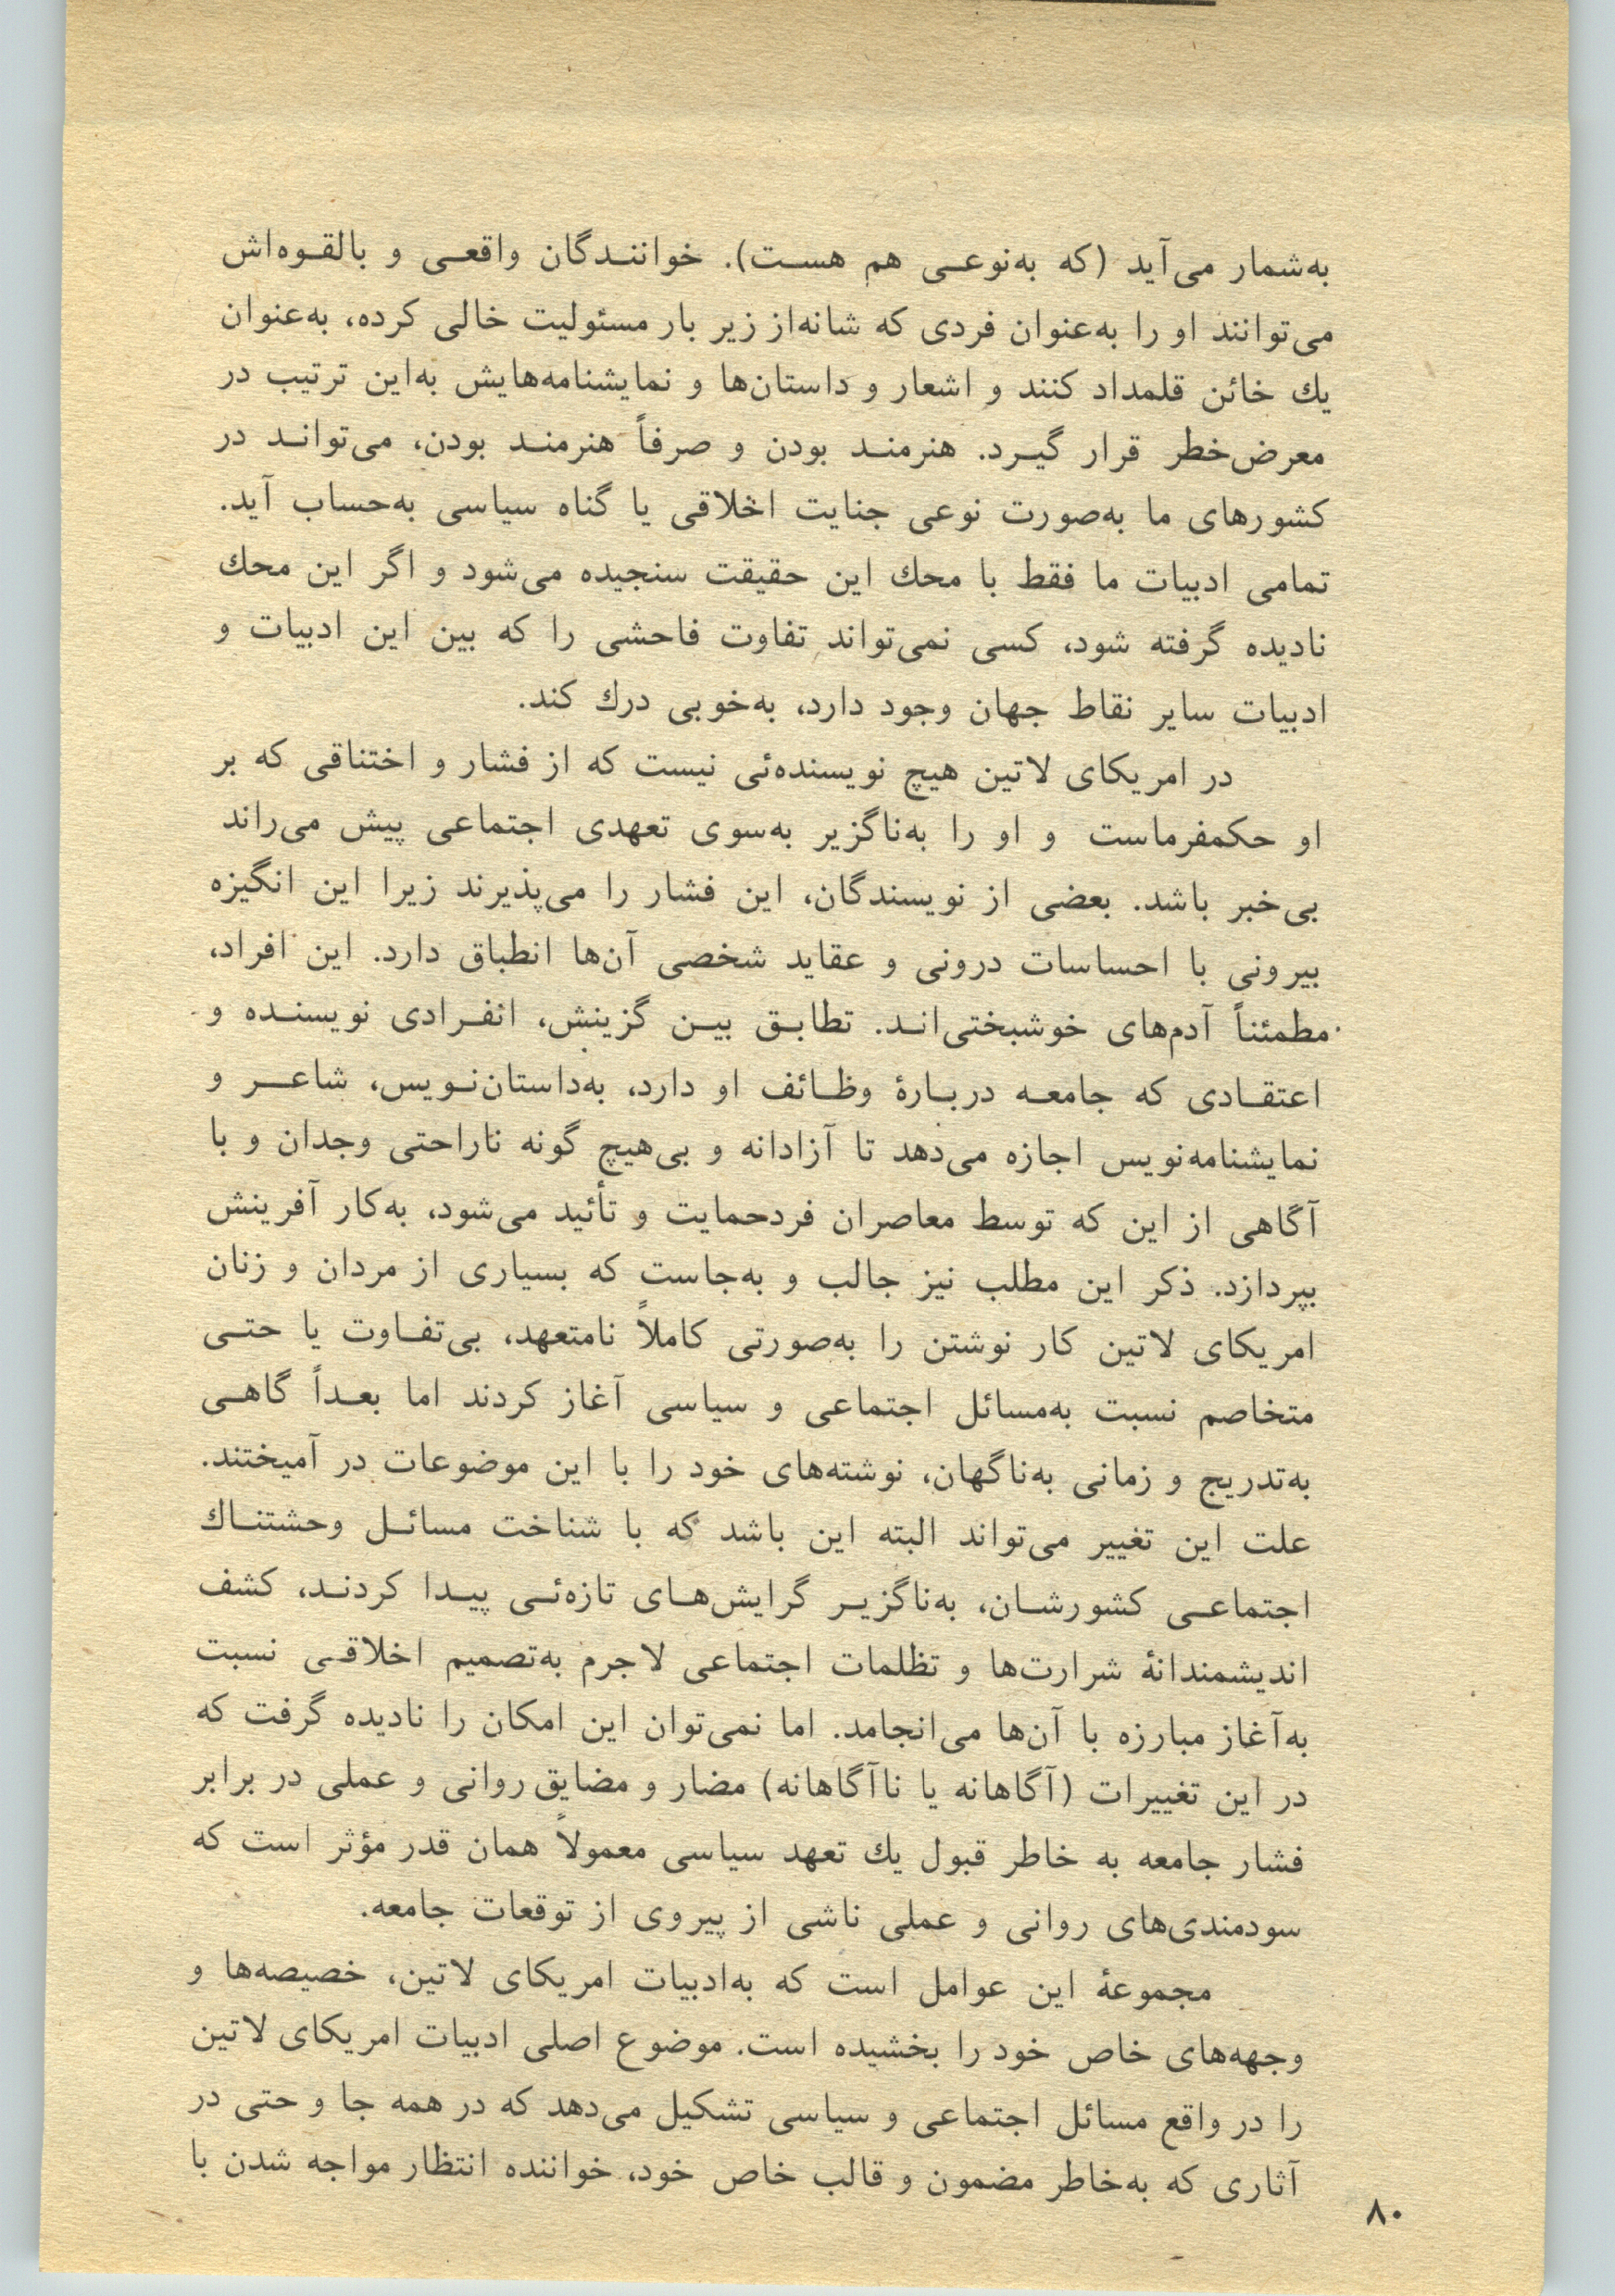 به‌شمار می‌آید (که به‌نوعی هم هست). خوانندگان واقعی و بالقوه‌اش
می‌توانند او را به‌عنوان فردی که شانه‌از زیر بار مسئولیت خالی کرده، به‌عنوان
یك خائن قلمداد کنند و اشعار و داستان‌ها و نمایشنامه‌هایش به‌این ترتیب در
معرض‌خطر قرار گیرد. هنرمند بودن و صرفاً هنرمند بودن، می‌تواند در
کشورهای ما به‌صورت نوعی جنایت اخلاقی یا گناه سیاسی به‌حساب آید.
تمامی ادبیات ما فقط با محك این حقیقت سنجیده می‌شود و اگر این محك
نادیده گرفته شود، کسی نمی‌تواند تفاوت فاحشی را که بین این ادبیات و
ادبیات سایر نقاط جهان وجود دارد، به‌خوبی درك کند.
در امریکای لاتین هیچ نویسنده‌ئی نیست که از فشار و اختناقی که بر
او حکمفرماست و او را به‌ناگزیر به‌سوی تعهدی اجتماعی پیش می‌راند
بی‌خبر باشد. بعضی از نویسندگان، این فشار را می‌پذیرند زیرا این انگیزه
بیرونی با احساسات درونی و عقاید شخصی آن‌ها انطباق دارد. این افراد،
مطمئناً آدم‌های خوشبختی‌اند. تطابق بین گزینش، انفرادی نویسنده و
اعتقادی که جامعه دربارهٔ وظائف او دارد، به‌داستان‌نویس، شاعر و
نمایشنامه‌نویس اجازه می‌دهد تا آزادانه و بی‌هیچ گونه ناراحتی وجدان و با
آگاهی از این که توسط معاصران فردحمایت و تأئید می‌شود، به‌کار آفرینش
بپردازد. ذکر این مطلب نیز جالب و به‌جاست که بسیاری از مردان و زنان
امریکای لاتین کار نوشتن را به‌صورتی کاملاً نامتعهد، بی‌تفاوت یا حتی
متخاصم نسبت به‌مسائل اجتماعی و سیاسی آغاز کردند اما بعداً گاهی
به‌تدریج و زمانی به‌ناگهان، نوشته‌های خود را با این موضوعات در آمیختند.
علت این تغییر می‌تواند البته این باشد که با شناخت مسائل وحشتناك
اجتماعی کشورشان، به‌ناگزیر گرایش‌های تازه‌ئی پیدا کردند، کشف
اندیشمندانهٔ شرارت‌ها و تظلمات اجتماعی لاجرم به‌تصمیم اخلاقی نسبت
به‌آغاز مبارزه با آن‌ها می‌انجامد. اما نمی‌توان این امکان را نادیده گرفت که
در این تغییرات (آگاهانه یا ناآگاهانه) مضار و مضایق روانی و عملی در برابر
فشار جامعه به خاطر قبول یك تعهد سیاسی معمولاً همان قدر مؤثر است که
سودمندی‌های روانی و عملی ناشی از پیروی از توقعات جامعه.
مجموعهٔ این عوامل است که به‌ادبیات امریکای لاتین، خصیصه‌ها و
وجهه‌های خاص خود را بخشیده است. موضوع اصلی ادبیات امریکای لاتین
را در واقع مسائل اجتماعی و سیاسی تشکیل می‌دهد که در همه جا و حتی در
آثاری که به‌خاطر مضمون و قالب خاص خود، خواننده انتظار مواجه شدن با
۸۰